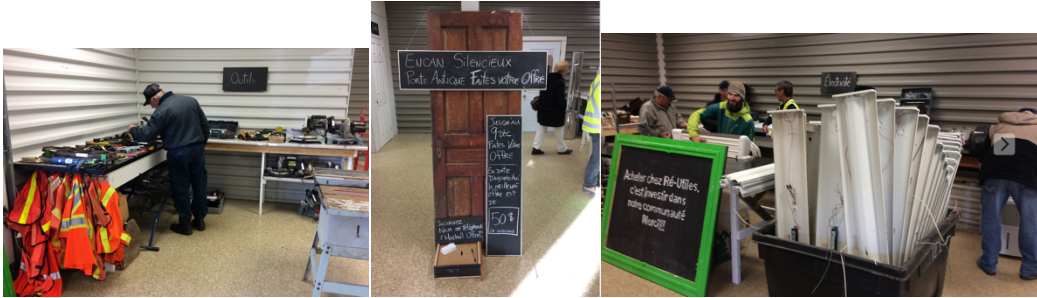 Outils
ENCAN SILENCIEUX
PORTE ANTIQUE FAITES VOTRE OFFRE
JUSQU'AU
9 DÉC
FAITES VOTRE
OFFRE
EN DATE
D'AUJOURD'HUI
LA MEILLEURE
OFFRE EST
DE
50$
INSCRIVEZ
NOM ET TÉLÉPHONE
Électricité
Acheter chez Ré-Utiles,
c'est investir dans
notre communauté
Merci!!!